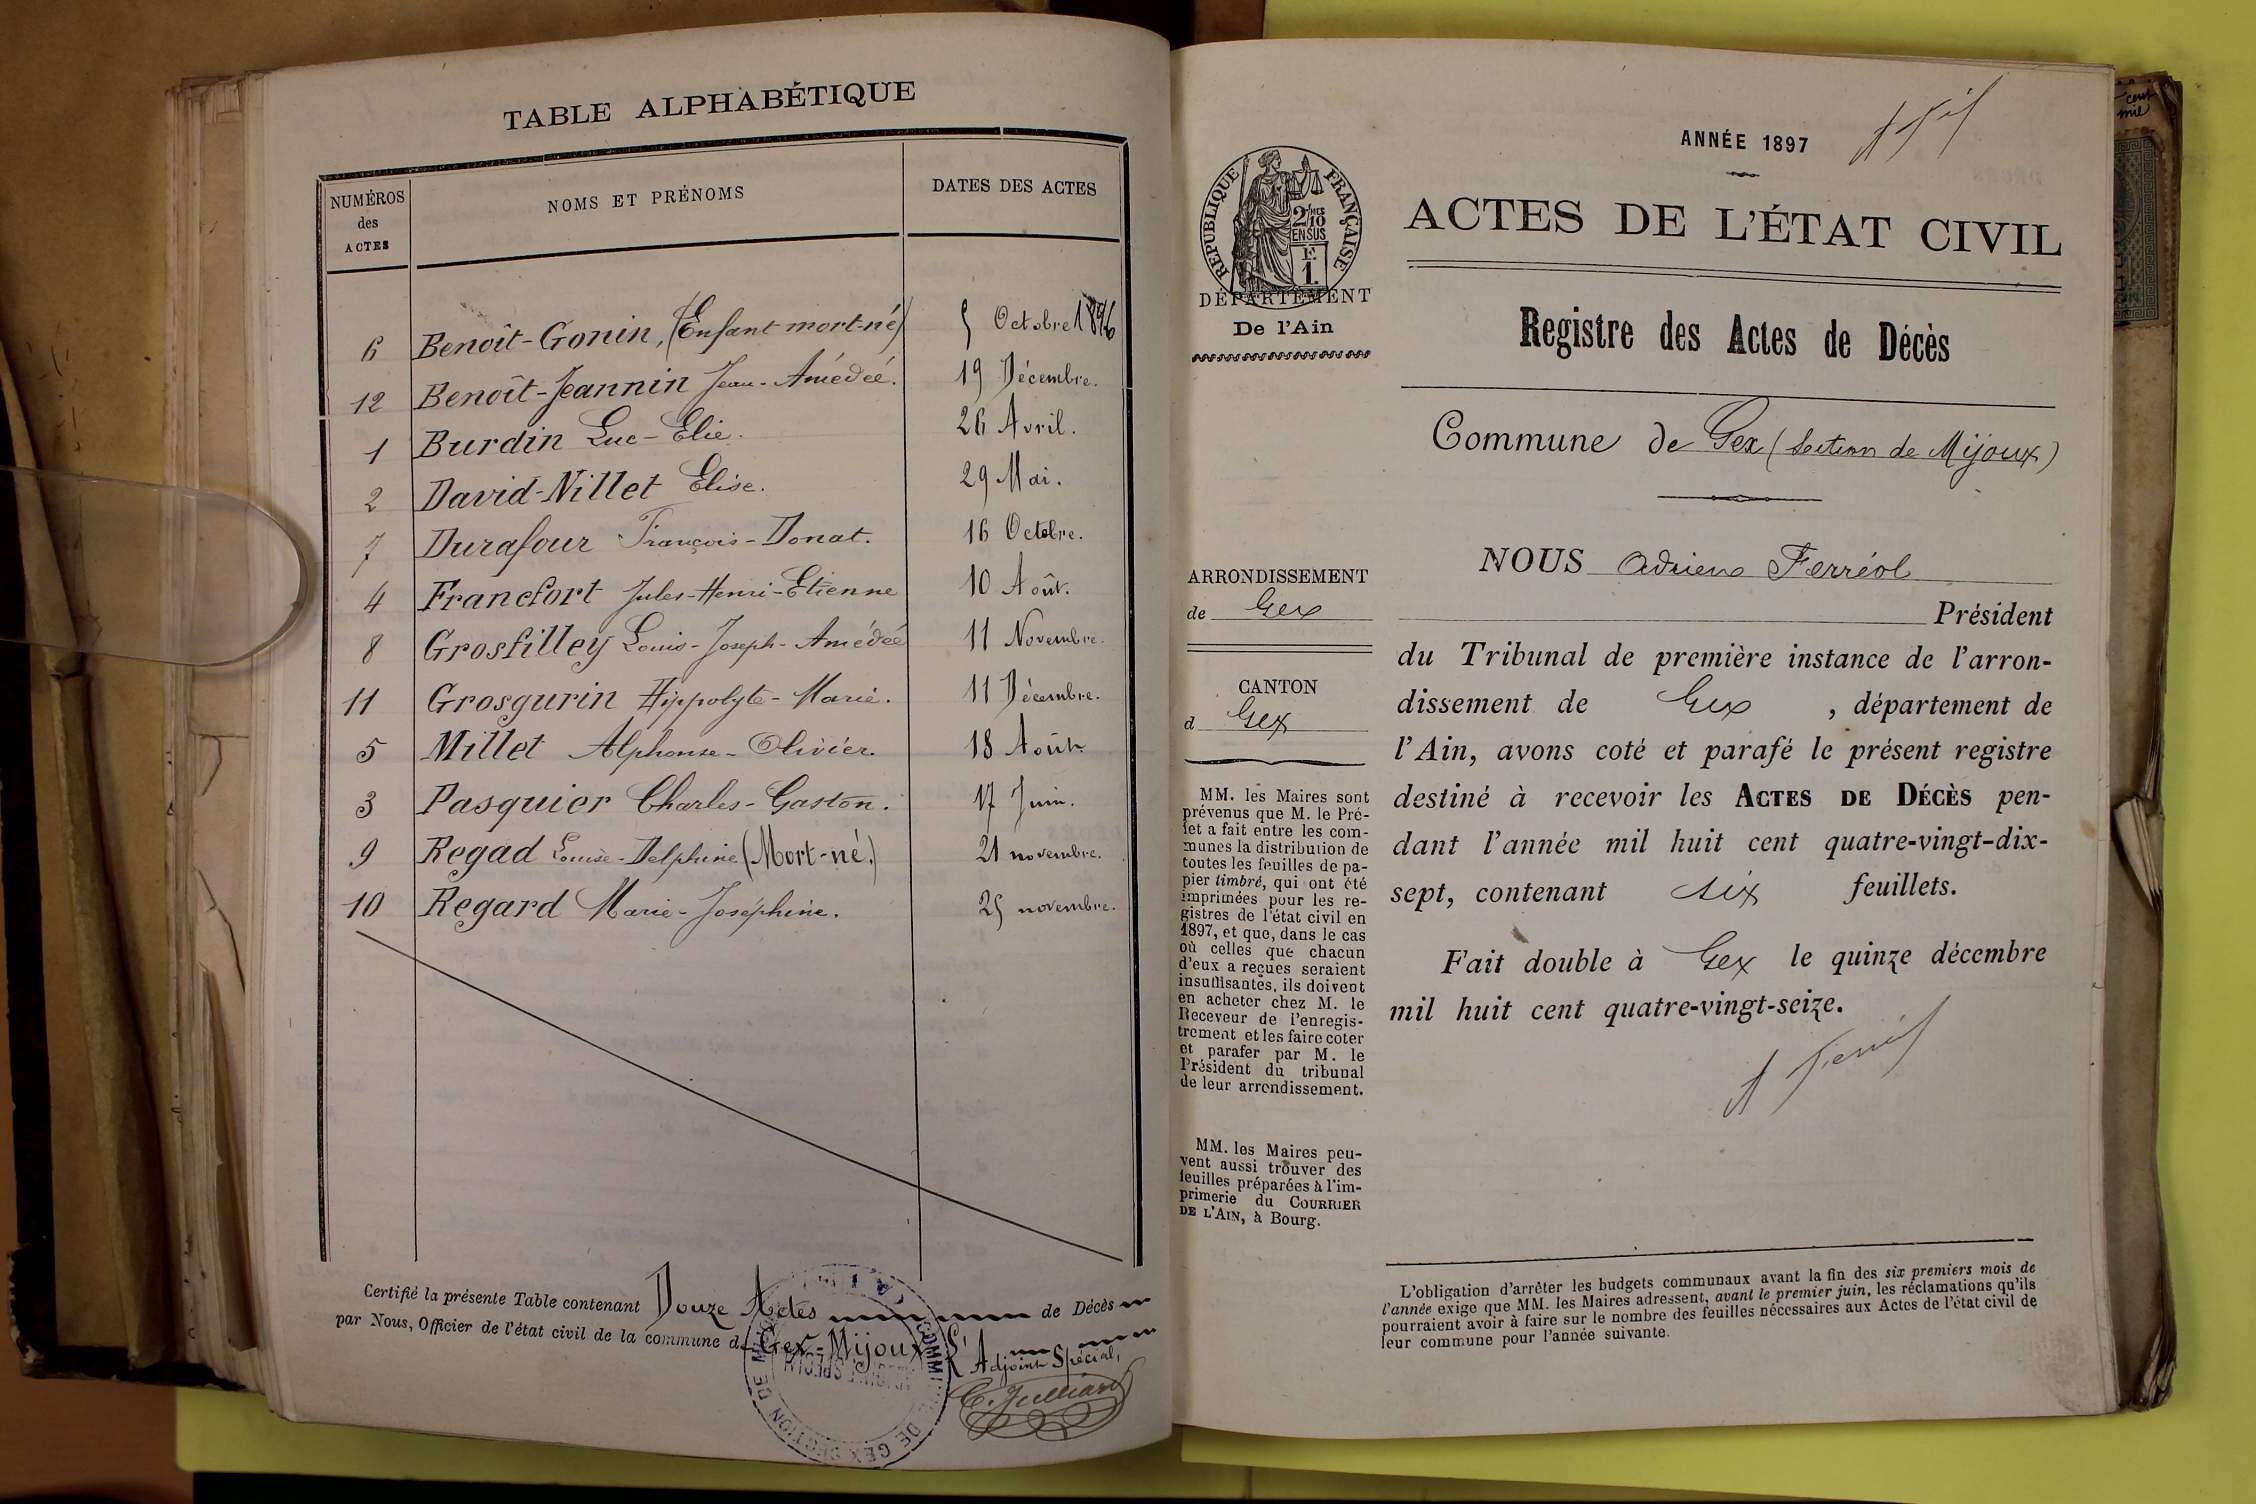 TABLE ALPHABÉTIQUE
NUMÉROS
des
ACTES
NOMS ET PRÉNOMS
DATES DES ACTES
6 Benoît-Gonin, (Enfant mort-né) 5 Octobre 1896
12 Benoît-Jeannin Jean-Amédéé. 19 Décembre.
1 Burdin Luc-Elie. 26 Avril.
2 David-Nillet Elise. 29 Mai.
7 Durafour François-Donat. 16 Octobre.
4 Francfort Jules-Henri-Etienne 10 Août.
8 Grosfilley Louis-Joseph-Amédéé 11 Novembre.
11 Grosgurin Hippolyte-Marie. 11 Décembre.
5 Millet Alphonse-Olivier. 18 Août.
3 Pasquier Charles-Gaston. 17 Juin.
9 Regad Louise-Delphine (Mort-né.) 21 novembre.
10 Regard Marie-Joséphine. 25 novembre.
Certifié la présente Table contenant Douze Actes de Décès
par Nous, Officier de l'état civil de la commune d Gex-Mijoux L'
Adjoint Spécial,
C. Julliard
ANNÉE 1897
RÉPUBLIQUE FRANÇAISE
2/10
EN SUS
F.
1.
ACTES DE L'ÉTAT CIVIL
DÉPARTEMENT
De l'Ain
Registre des Actes de Décès
Commune de Gex (Section de Mijoux)
ARRONDISSEMENT
de Gex
CANTON
d Gex
MM. les Maires sont
prévenus que M. le Pré-
fet a fait entre les com-
munes la distribution de
toutes les feuilles de pa-
pier timbré, qui ont été
imprimées pour les re-
gistres de l'état civil en
1897, et que, dans le cas
où celles que chacun
d'eux a reçues seraient
insuffisantes, ils doivent
en acheter chez M. le
Receveur de l'enregis-
trement et les faire coter
et parafer par M. le
Président du tribunal
de leur arrondissement.
MM. les Maires peu-
vent aussi trouver des
feuilles préparées à l'im-
primerie du COURRIER
DE L'AIN, à Bourg.
NOUS Adrien Ferréol
Président
du Tribunal de première instance de l'arron-
dissement de Gex, département de
l'Ain, avons coté et parafé le présent registre
destiné à recevoir les ACTES DE DÉCÈS pen-
dant l'année mil huit cent quatre-vingt-dix-
sept, contenant six feuillets.
Fait double à Gex le quinze décembre
mil huit cent quatre-vingt-seize.
L'obligation d'arrêter les budgets communaux avant la fin des six premiers mois de
l'année exige que MM. les Maires adressent, avant le premier juin, les réclamations qu'ils
pourraient avoir à faire sur le nombre des feuilles nécessaires aux Actes de l'état civil de
leur commune pour l'année suivante.
cent
mil